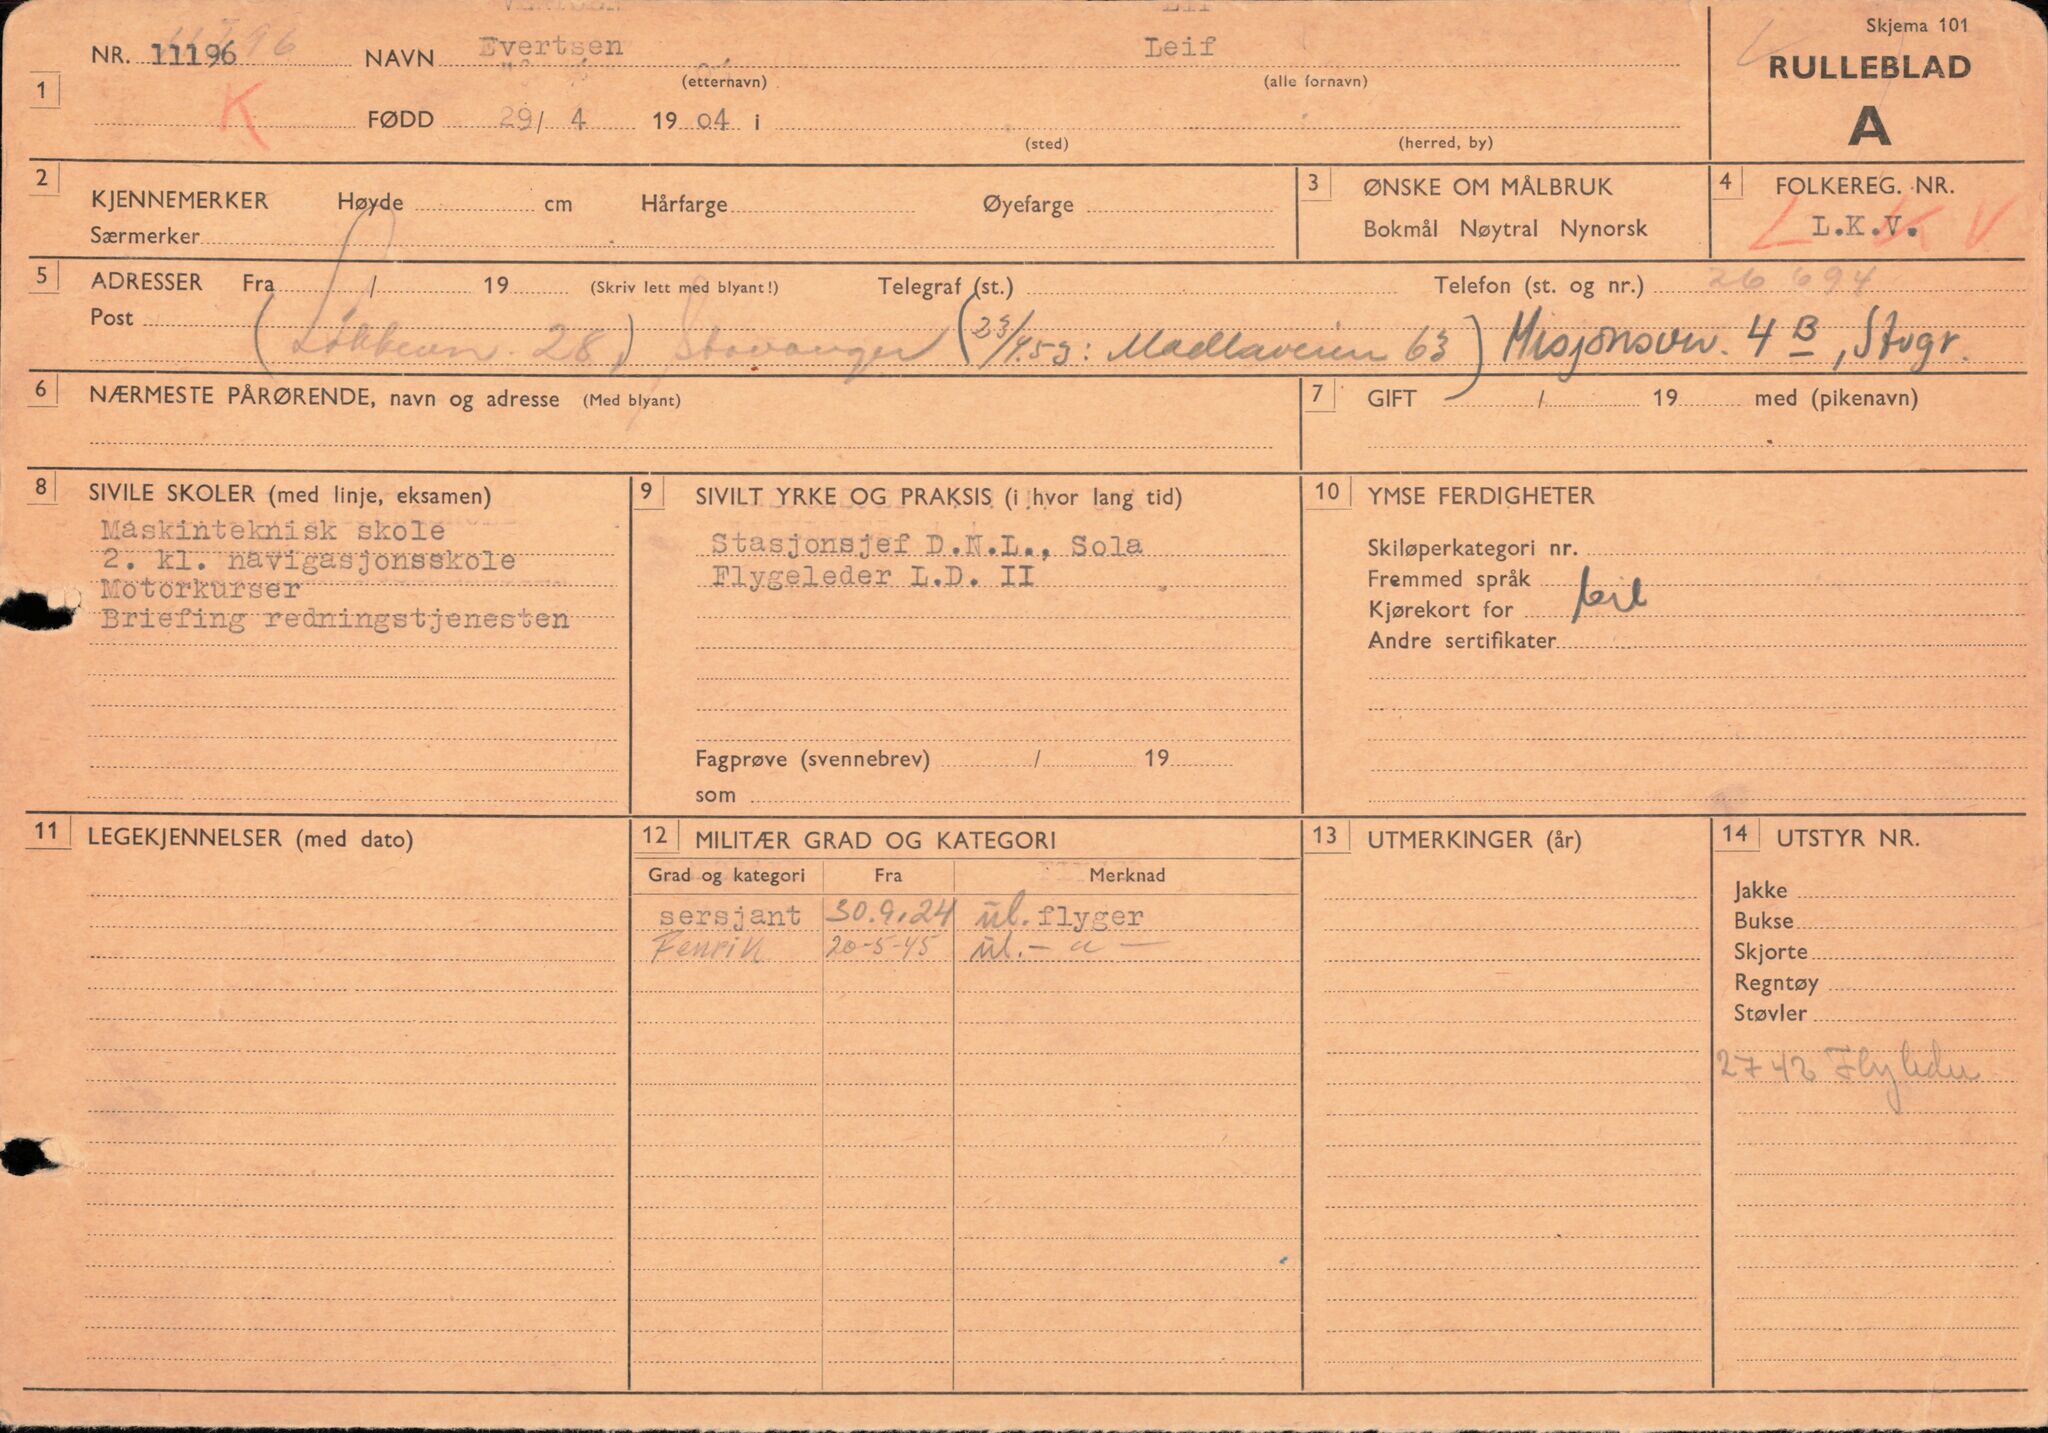 Skjema 101
NR. 11196 NAVN Evertsen Leif RULLEBLAD
1 (etternavn) (alle fornavn)
K FØDD 29/ 4 1904 i A
(sted) (herred, by)
2 KJENNEMERKER Høyde cm Hårfarge Øyefarge
Særmerker
3 ØNSKE OM MÅLBRUK
Bokmål Nøytral Nynorsk
4 FOLKEREG. NR.
L.K.V.
L K V
5 ADRESSER Fra / 19 (Skriv lett med blyant!) Telegraf (st.) Telefon (st. og nr.) 26 694
Post ( 28) Stavanger (23/4.59: Madlaveien 63) Misjonsvn. 4 B, Stvgr.
6 NÆRMESTE PÅRØRENDE, navn og adresse (Med blyant)
7 GIFT / 19 med (pikenavn)
8 SIVILE SKOLER (med linje, eksamen)
Maskinteknisk skole
2. kl. navigasjonsskole
Motorkurser
Briefing redningstjenesten
9 SIVILT YRKE OG PRAKSIS (i hvor lang tid)
Stasjonsjef D.N.L., Sola
Flygeleder L.D. II
Fagprøve (svennebrev) / 19
som
10 YMSE FERDIGHETER
Skiløperkategori nr.
Fremmed språk
Kjørekort for bil
Andre sertifikater
11 LEGEKJENNELSER (med dato)
12 MILITÆR GRAD OG KATEGORI
Grad og kategori Fra Merknad
sersjant 30.9.24 ul. flyger
Fenrik 20-5-45 ul. - " -
13 UTMERKINGER (år)
14 UTSTYR NR.
Jakke
Bukse
Skjorte
Regntøy
Støvler
2742 Flyleder